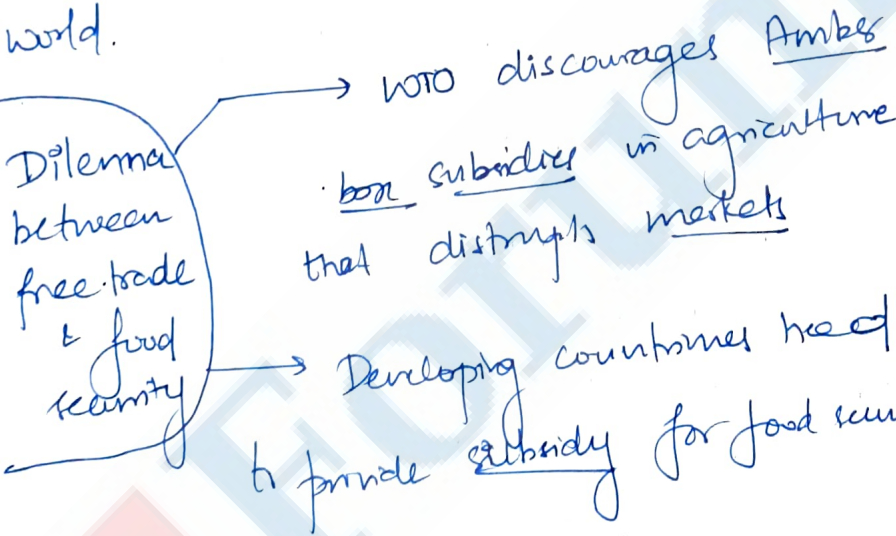 world.
Dilemma
between
free trade
& food
security
→ WTO discourages Amber
box subsidies in agriculture
that distrupts markets
→ Developing countries need
to provide subsidy for food secu
Forum